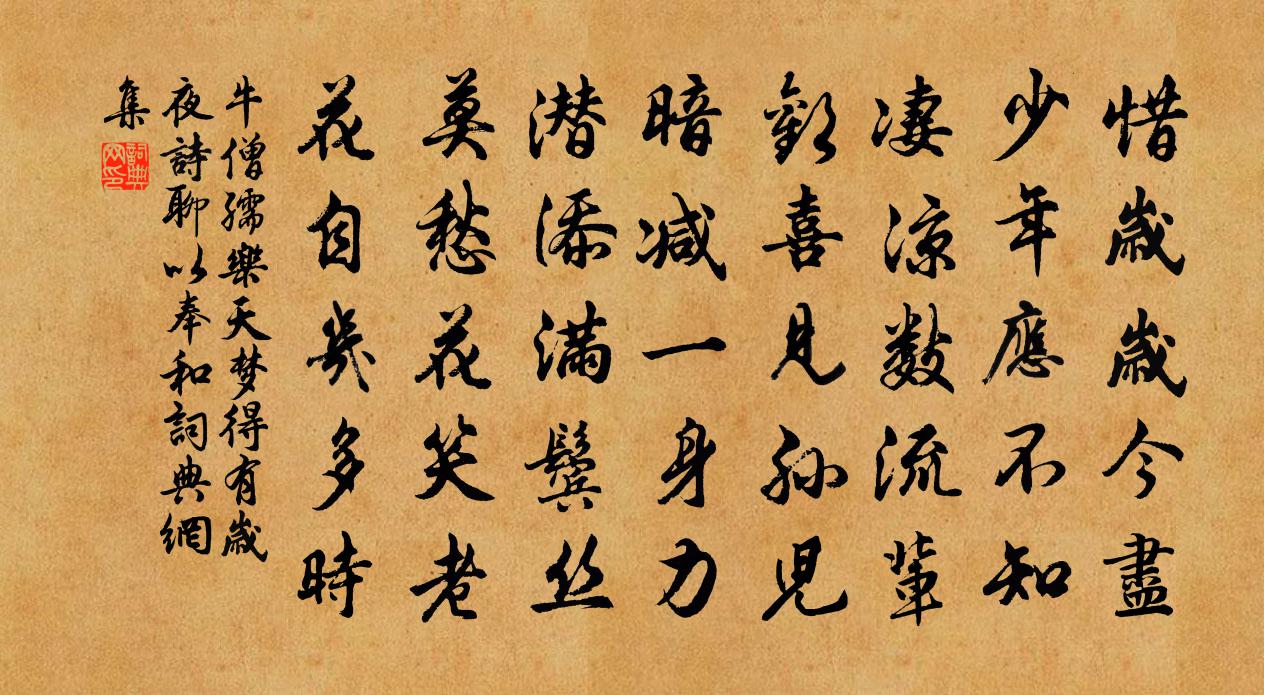 惜歲歲今盡
少年應不知
凄涼數流輩
歡喜見孫兒
暗減一身力
潛添滿鬢丝
莫愁花笑老
花自幾多時
牛僧孺樂天梦得有歲
夜詩聊以奉和詞典網
集
詞典
网印